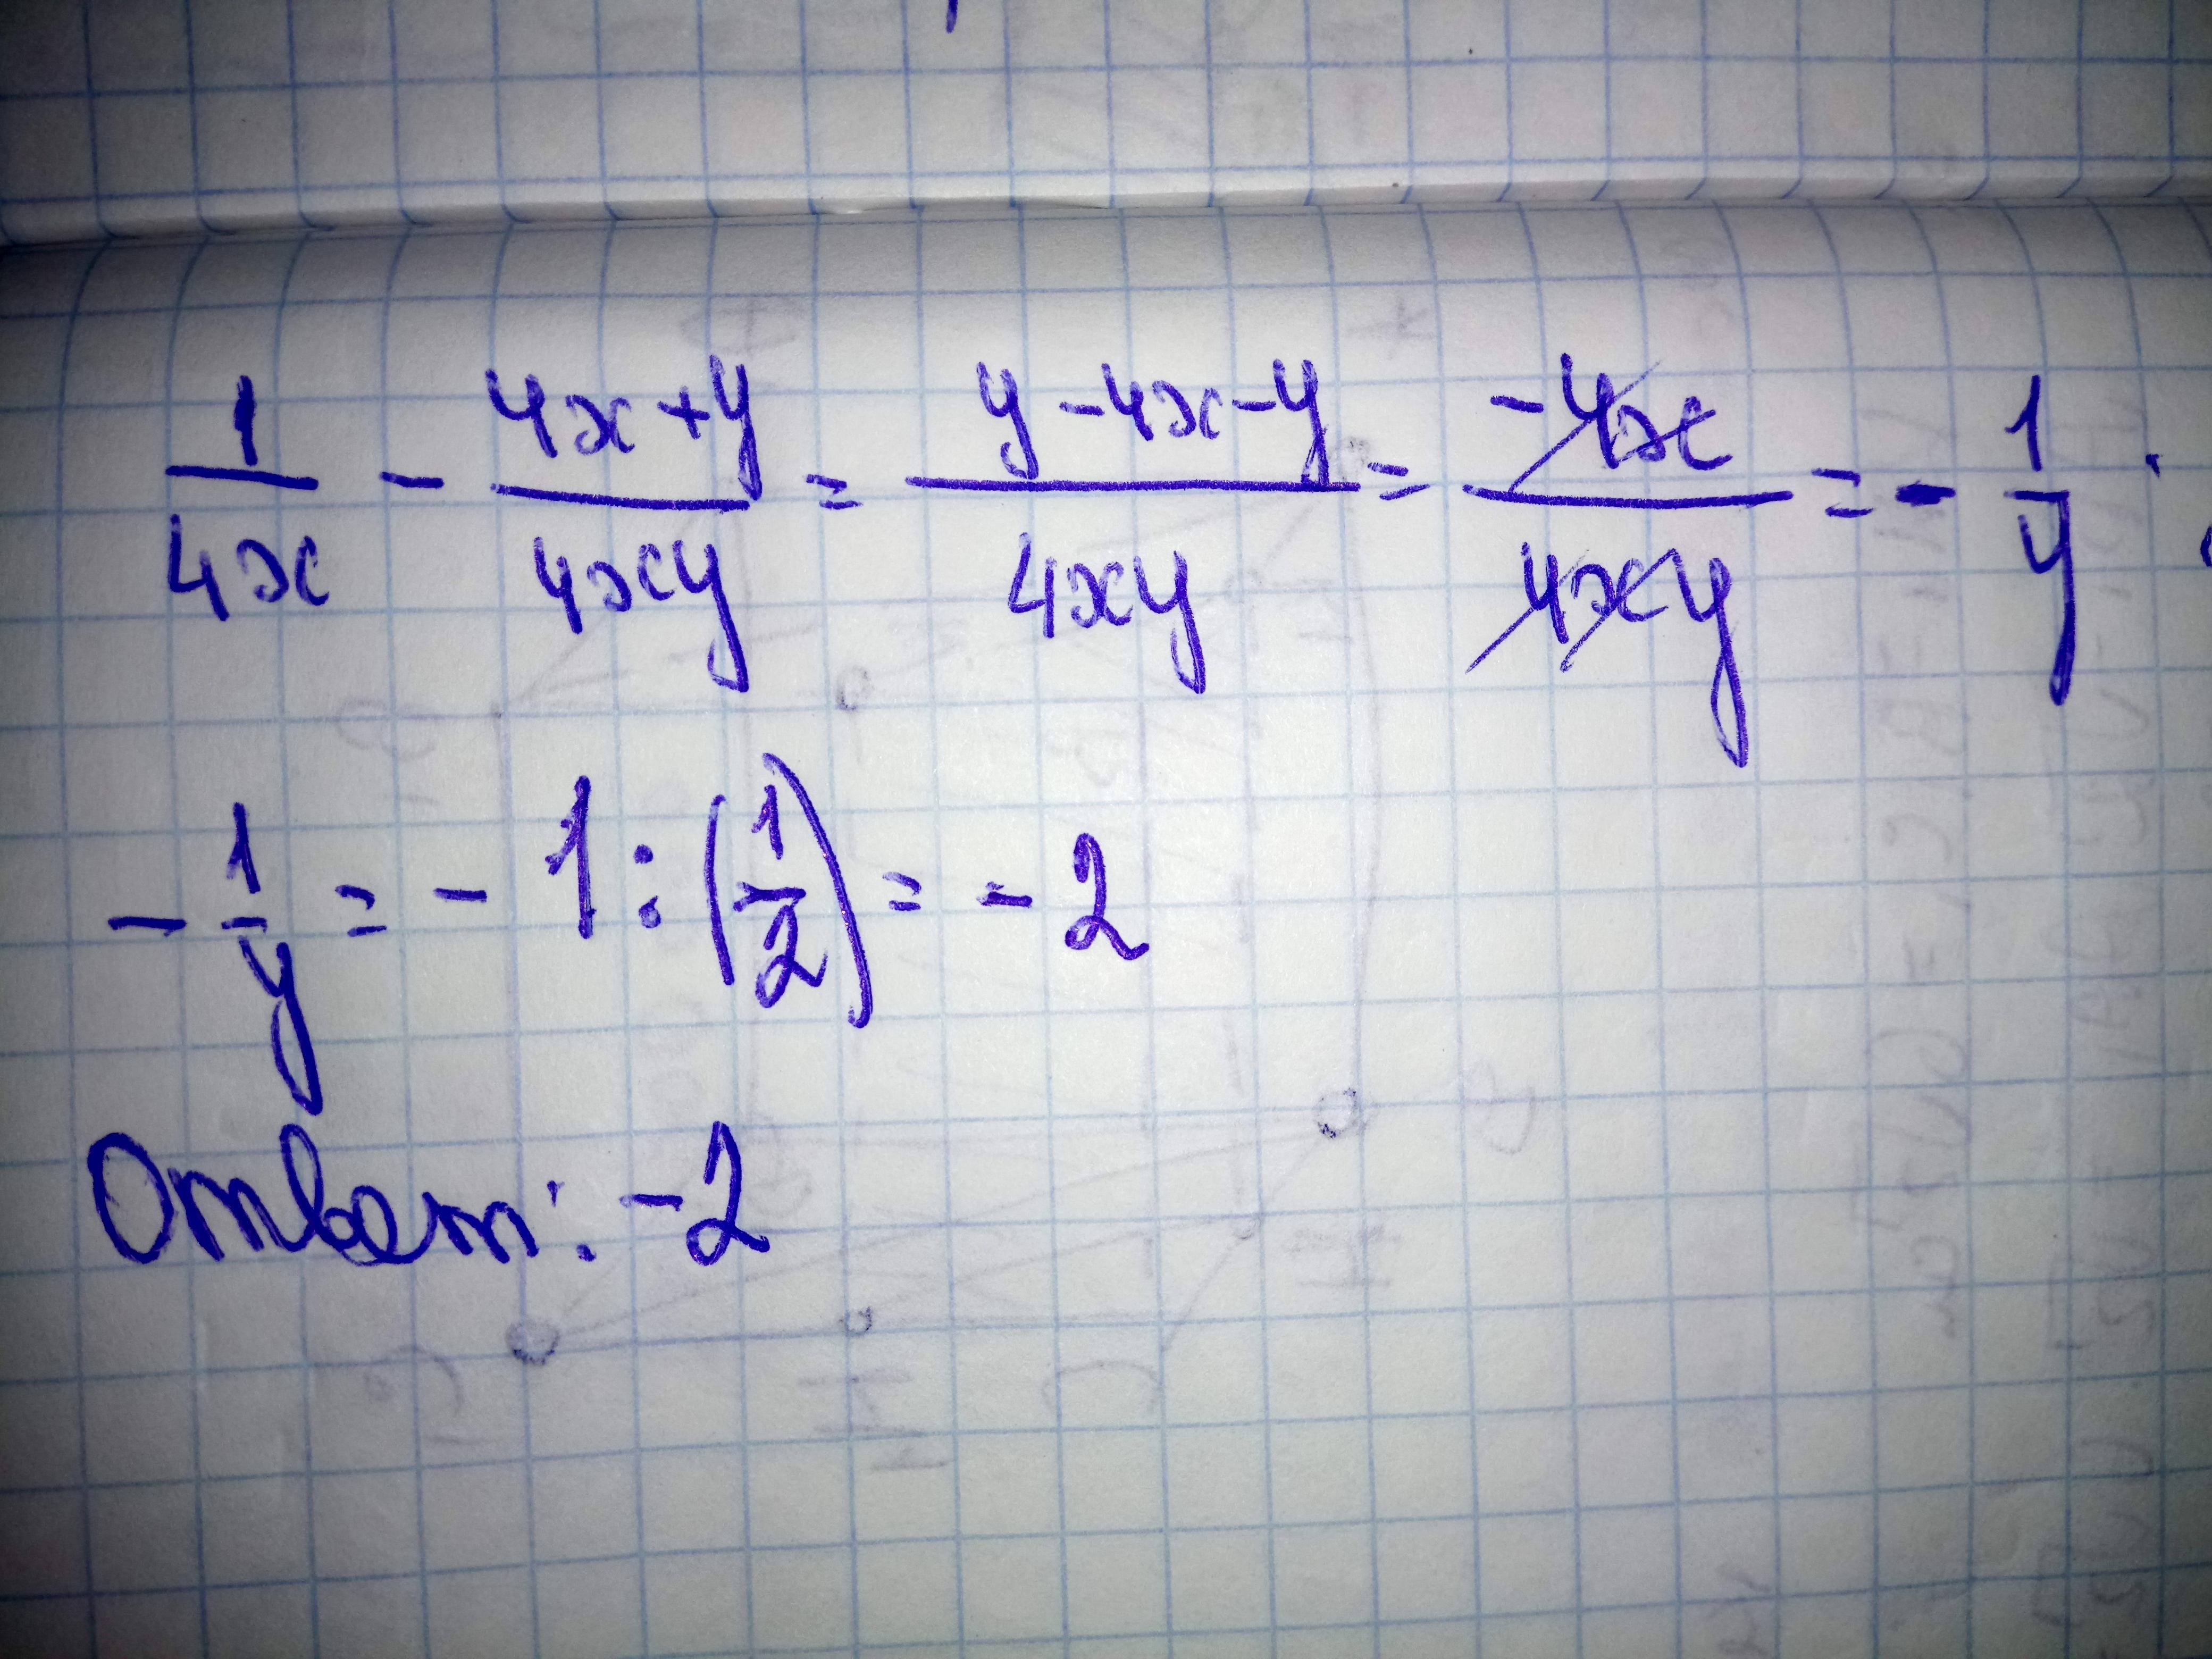 1/4x - 4x+y/4xy = y-4x-y/4xy = -4x/4xy = - 1/y
- 1/y = - 1 : (1/2) = - 2
Ответ: -2